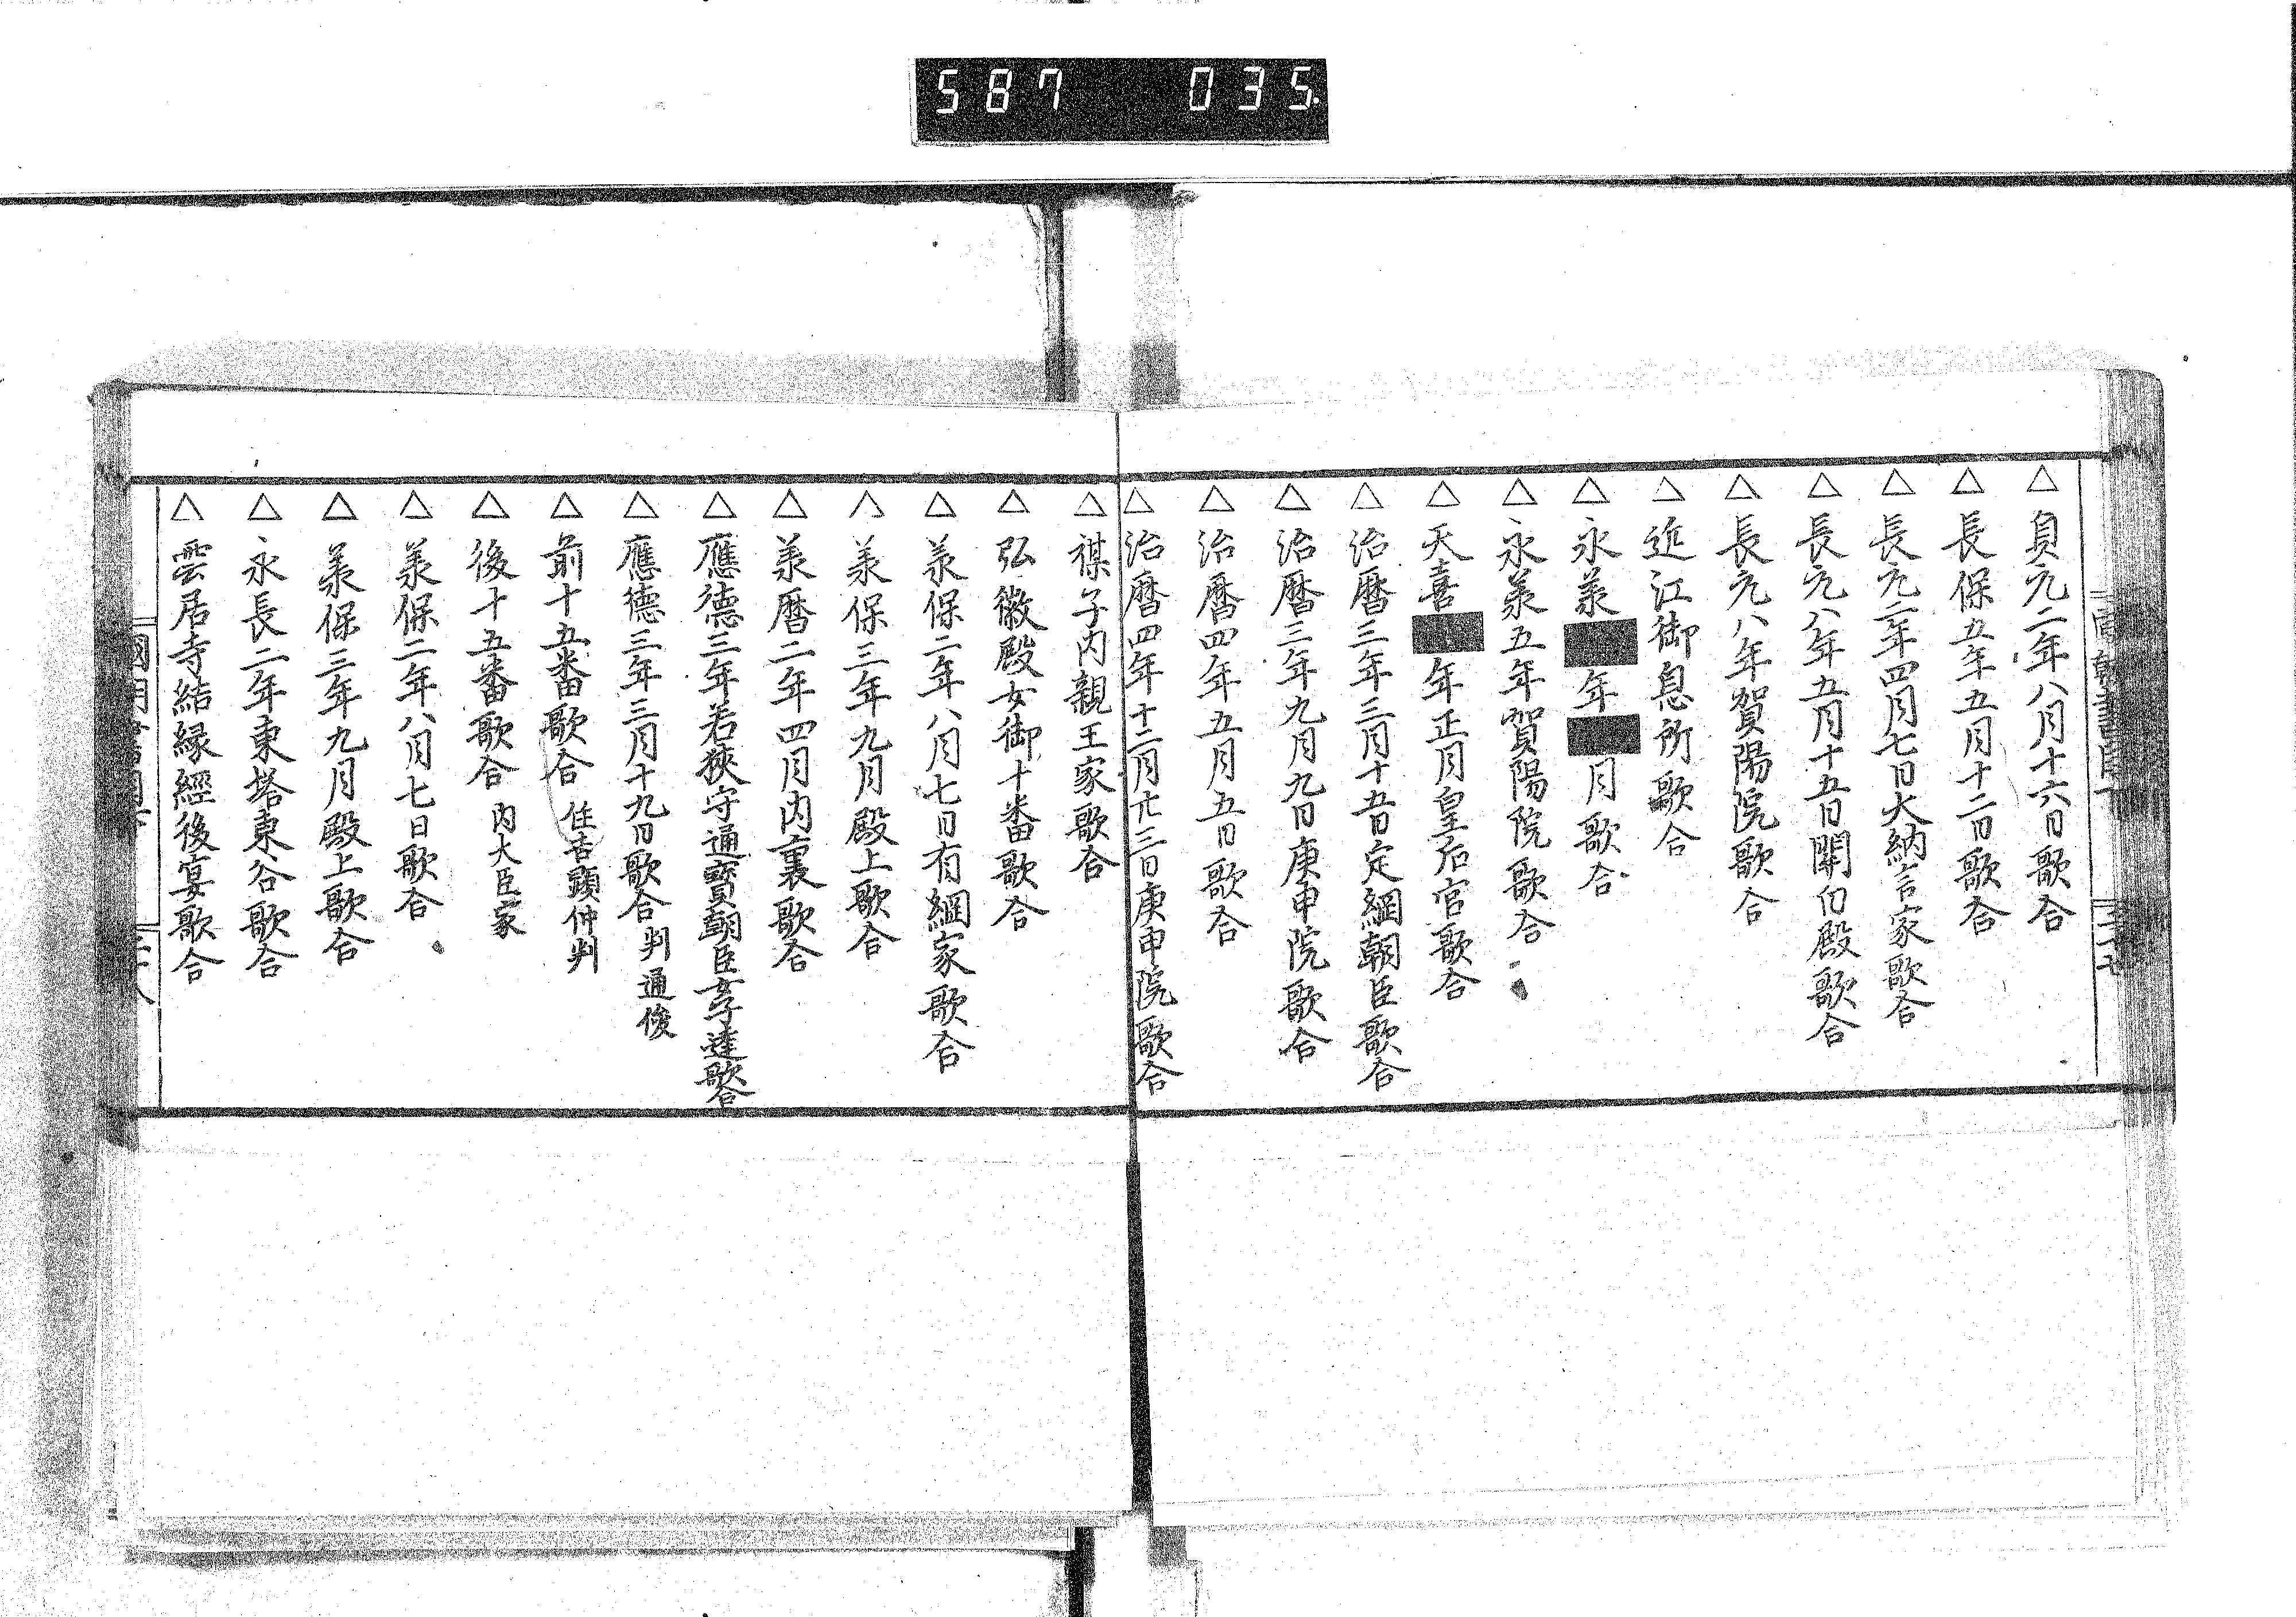 587 035.
△貞元二年八月十六日歌合
△長保五年五月十二日歌合
△長元二年四月七日大納言家歌合
△長元八年五月十五日關白殿歌合
△長元八年賀陽院歌合
△近江御息所歌合
△永義年月歌合
△永義五年賀陽院歌合
△天喜年正月皇后宮歌合
△治曆三年三月十五日定綱朝臣歌合
△治曆三年九月九日庚申院歌合
△治曆四年五月五日歌合
△治曆四年十二月廿三日庚申院歌合
△禖子内親王家歌合
△弘徽殿女御十番歌合
△義保二年八月七日有綱家歌合
△義保三年九月殿上歌合
△義曆二年四月内裏歌合
△應德三年若狹守通寶朝臣女子達歌合
△應德三年三月十九日歌合 判通俊
△前十五番歌合 住吉顕仲判
△後十五番歌合 内大臣家
△義保二年八月七日歌合
△義保三年九月殿上歌合
△永長二年東塔東谷歌合
△雲居寺結緣經後宴歌合